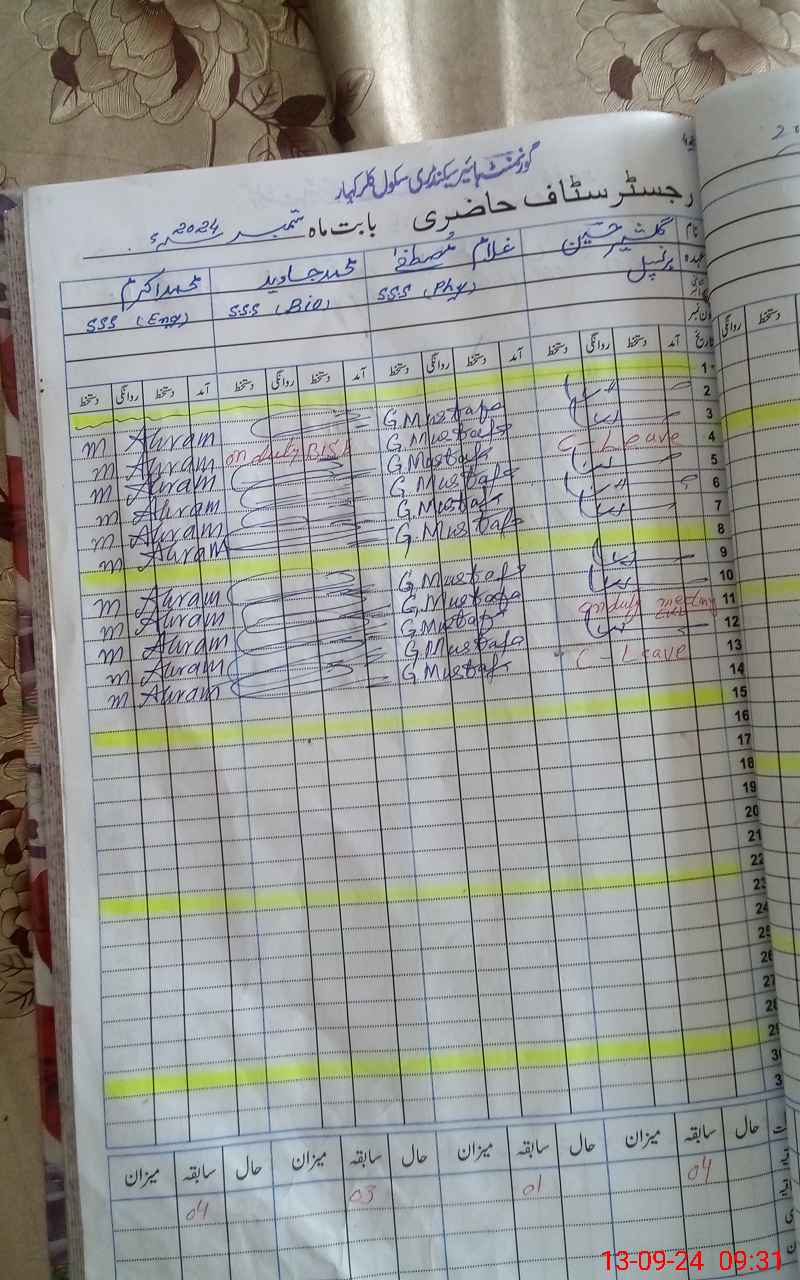 گورنمنٹ ہائیر سیکنڈری سکول کلرکہار
رجسٹر سٹاف حاضری بابت ماہ ستمبر 2024ء
نام گلشیر حسین غلام مصطفیٰ محمد جاوید محمد اکرم
عہدہ پرنسپل SSS (Phy) SSS (Bio) SSS (Eng)
تاریخ آمد دستخط روانگی دستخط آمد دستخط روانگی دستخط آمد دستخط روانگی دستخط آمد دستخط روانگی دستخط
روانگی دستخط
1
2 G. Mustafa M Akram
3 G. Mustafa on duty BISE M Akram
4 C-Leave G. Mustafa M Akram
5 G. Mustafa M Akram
6 G. Mustafa M Akram
7 G. Mustafa M Akram
8
9 G. Mustafa M Akram
10 G. Mustafa M Akram
11 on duty meeting G. Mustafa M Akram
12 G. Mustafa M Akram
13 C-Leave G. Mustafa M Akram
14
15
16
17
18
19
20
21
22
23
24
25
26
27
28
29
30
3
حال سابقہ میزان حال سابقہ میزان حال سابقہ میزان حال سابقہ میزان
04 01 03 04
13-09-24 09:31